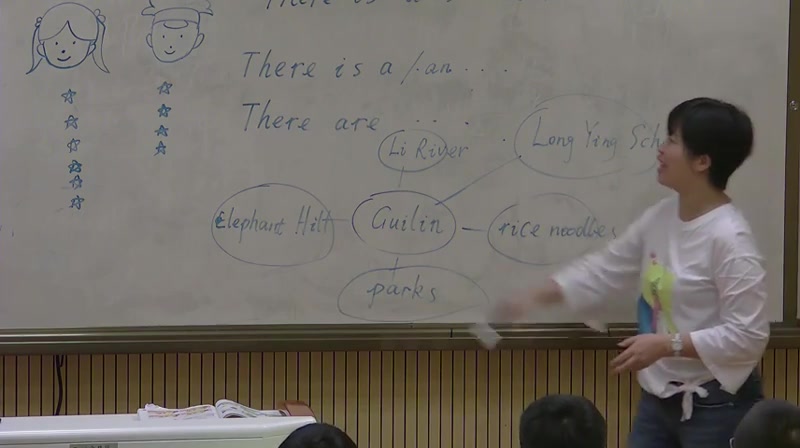 There is a
There is a /.an ....
There are ...
Li River
Long Ying Sch
Elephant Hill
Guilin
rice noodles
parks